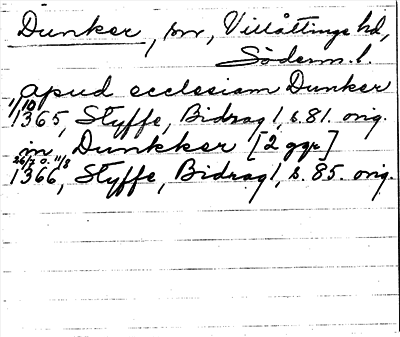 Dunker, sn, Villåttinge hd,
Söderm. l.
apud ecclesiam Dunker
1/10
1365, Styffe, Bidrag 1, s. 81. orig.
in Dunkker [2 ggr]
26/7 o. 11/8
1366, Styffe, Bidrag 1, s. 85. orig.